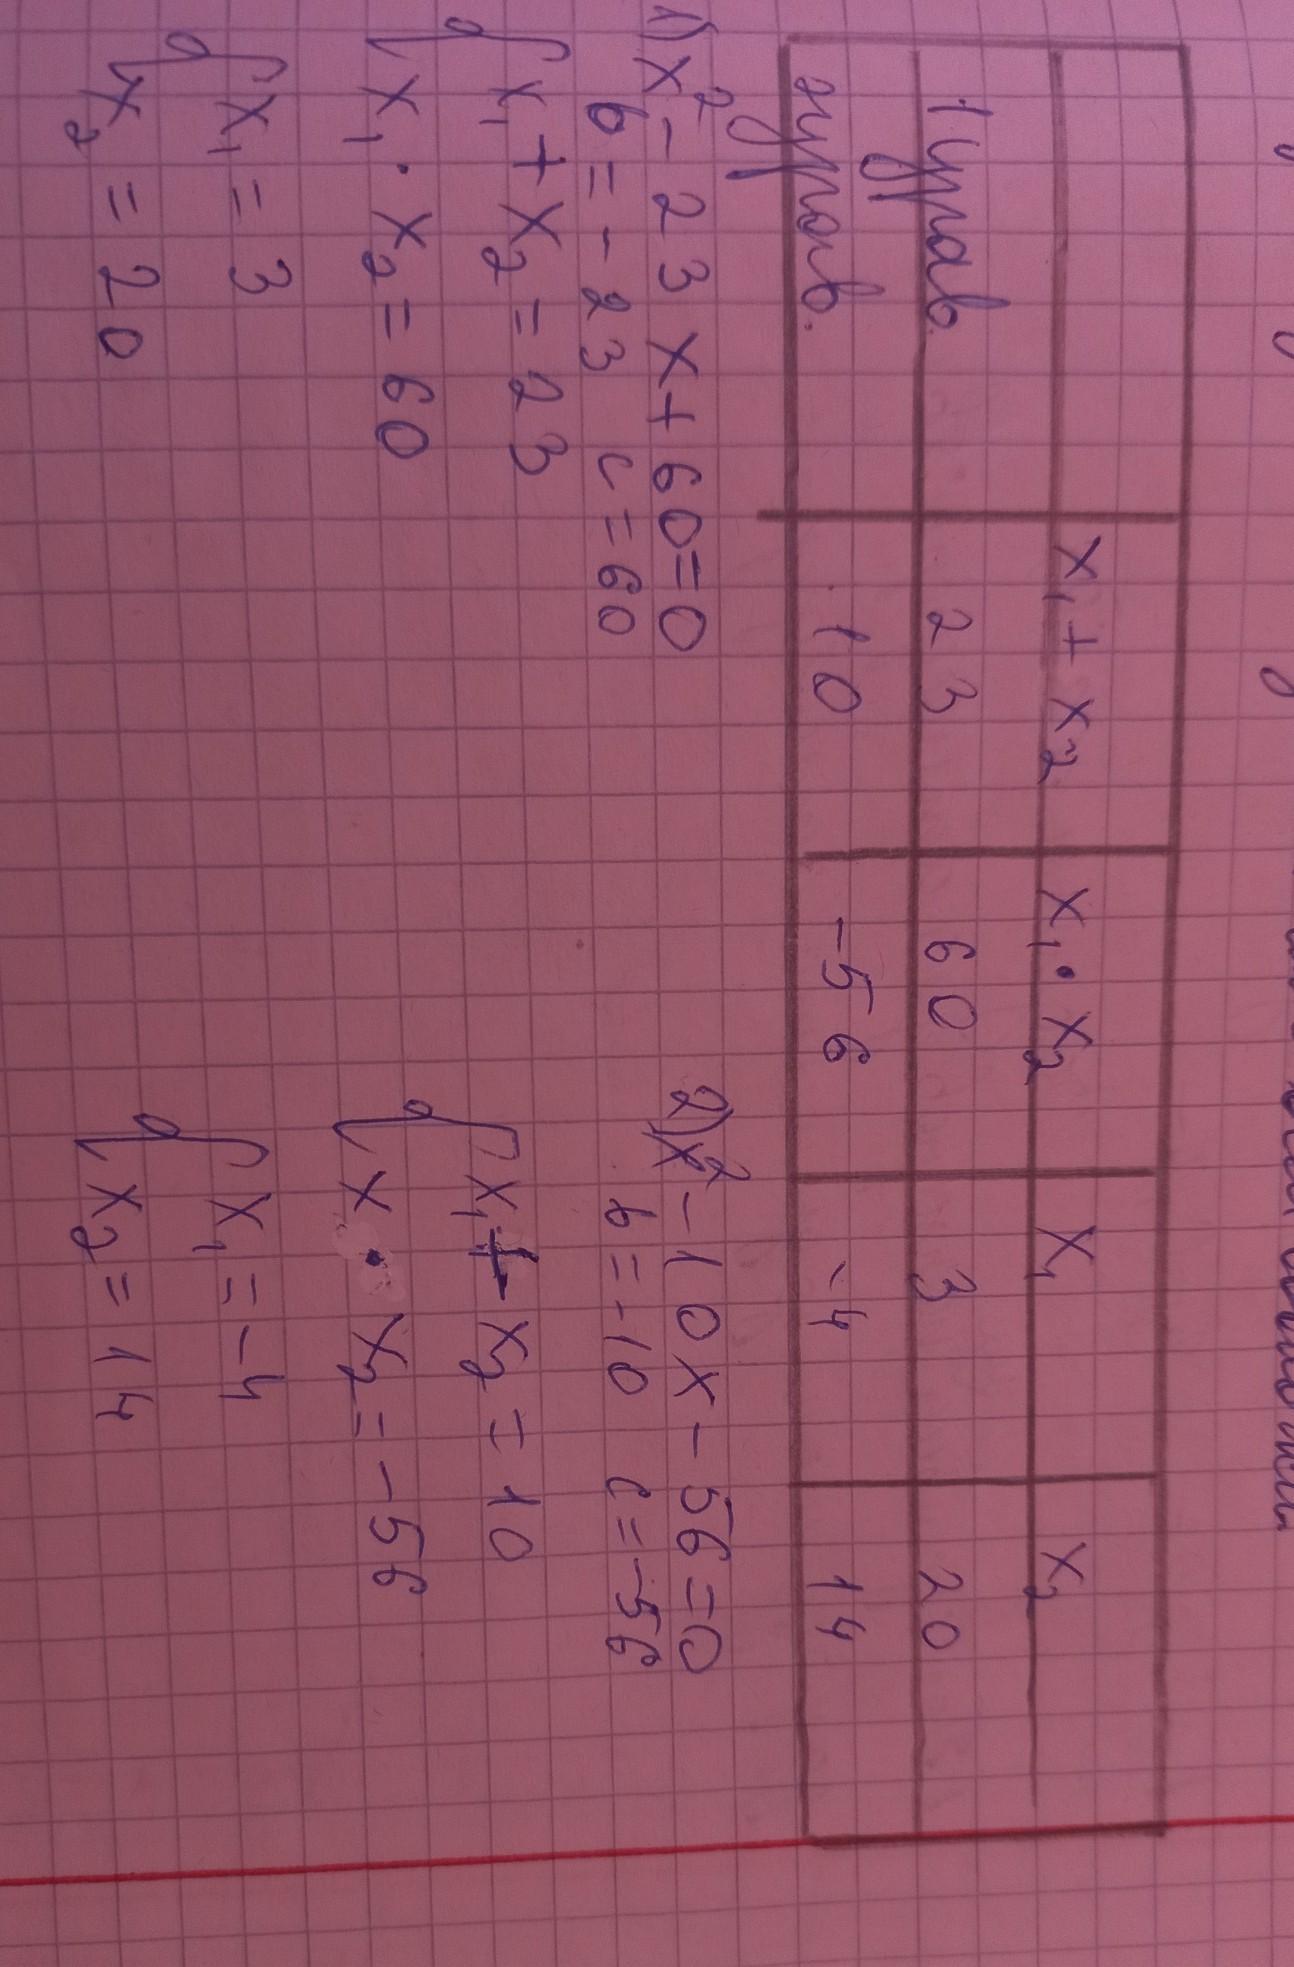 x₁ + x₂ x₁ · x₂ x₁ x₂
1 урав. 23 60 3 20
2 урав. 10 -56 -4 14
1) x² - 23x + 60 = 0
b = -23 c = 60
{ x₁ + x₂ = 23
x₁ · x₂ = 60
{ x₁ = 3
x₂ = 20
2) x² - 10x - 56 = 0
b = -10 c = -56
{ x₁ + x₂ = 10
x · x₂ = -56
{ x₁ = -4
x₂ = 14